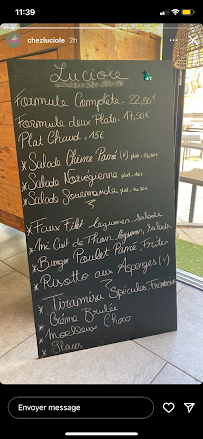 11:39
chezluciole 2h
Luciole
Formule Complète . 22,50€
Formule deux Plats . 17,50€
Plat Chaud . 15€
* Salade Chèvre Pané (v) plat .
* Salade Norvégienne plat .
* Salade Gourmande plat .
* Faux Filet légumes, Salade
* Mi Cuit de Thon légumes, Salade
* Burger Poulet Pané, Frites
* Risotto aux Asperges (v)
* Tiramisu Spéculos, Framboise
* Crème Brulée
* Moelleux Choco
* Glaces
Envoyer message